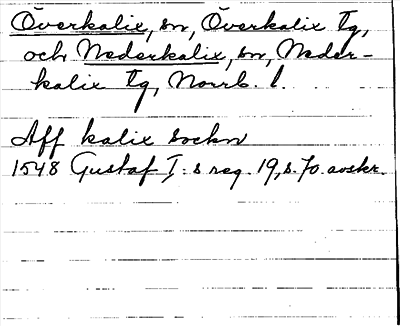 Överkalix, sn, Överkalix tg,
och Nederkalix, sn, Neder-
kalix tg, Norrb. l.
Aff kalix sockn
1548 Gustaf I:s reg. 19, s. 70. avskr.